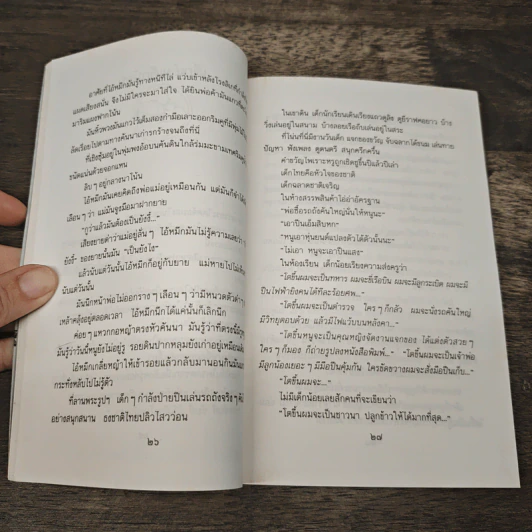 อาศัยที่ไอ้หมึกมันรู้ทางหนีทีไล่ แว่บเข้าหลังโรงลิเก
แผดเสียงสนั่น จึงไม่มีใครจะมาใส่ใจ ได้ยินพ่อค้า
มาริมแอ่งฟากโน้น
มันหิ้วพวงมันแกวไว้เต็มสองกำมือเลาะออกริมคู
ลัดเรื่อยไปตามทางคันนาเก่ารกร้างจนถึงที่นี่
ที่เชิงซุ้มอยู่ในพุ่มพงอ้อบนคันดิน ใกล้ร่มมะขามเทศ
ชนิดแม่นด้วยจอกแหน
ลิบ ๆ อยู่กลางนาโน้น
ไอ้หมึกมันเคยคิดถึงพ่อแม่อยู่เหมือนกัน แต่มันก็
เลือน ๆ ว่า แม่มันจูงมือมาฝากยาย
"กูว่าแล้วมันต้องเป็นยังงี้..."
เสียงยายด่าว่าแม่อยู่ลั่น ๆ ไอ้หมึกมันไม่รู้ความเลยว่า
ยังงี้" ของยายนั้นมัน "เป็นยังไง"
แล้วนับแต่วันนั้นไอ้หมึกก็อยู่กับยาย แม่หายไปไม่
นับแต่วันนั้น
มันนึกหน้าพ่อไม่ออกราง ๆ เลือน ๆ ว่ามีหนวดตัวดำ ๆ
เหล้าคลุ้งอยู่ตลอดเวลา ไอ้หมึกนึกได้แค่นั้นก็เลิกนึก
ค่อย ๆ แหวกกอหญ้าตรงหัวคันนา มันรู้ว่าที่ตรงนี้มี
มันรู้ว่าวันนี้หนูยังไม่อยู่รู รอยดินปากหลุมยังเก่าอยู่เหมือน
ไอ้หมึกเกลี่ยหญ้าให้เข้ารอยแล้วกลับมานอนกินมัน
กระทั่งหลับไปไม่รู้ตัว
ที่ลานพระรูปฯ เด็ก ๆ กำลังป่ายปีนเล่นรถถังจริง ๆ
อย่างสนุกสนาน ธงชาติไทยปลิวไสวว่อน
๒๖
ในเขาดิน เด็กนักเรียนเดินเรียงแถวดูลิง ดูยีราฟคอยาว บ้าง
วิ่งเล่นอยู่ในสนาม บ้างลอยเรือถีบเล่นอยู่ในสระ
ที่โน่นที่นี่มีงานวันเด็ก แจกของขวัญ จับฉลากได้ขนม เล่นทาย
ปัญหา ฟังเพลง ดูดนตรี สนุกครึกครื้น
คำขวัญไพเราะหรูถูกเชิดชูขึ้นปีแล้วปีเล่า
เด็กไทยคือหัวใจของชาติ
เด็กฉลาดชาติเจริญ
ในห้างสรรพสินค้าโอ่อ่าอัครฐาน
"พ่อซื้อรถถังคันใหญ่นั้นให้หนูนะ"
"เอาปืนเอ็มสิบหก"
"หนูเอาหุ่นยนต์แปลงตัวได้ตัวนั้นนะ"
"ไม่เอา หนูจะเอาปืนแสง"
ในห้องเรียน เด็กน้อยเรียงความส่งครูว่า
"โตขึ้นผมจะเป็นทหาร ผมจะขี่เรือบิน ผมจะมีลูกระเบิด ผมจะมี
ปืนไฟฟ้ายิงคนได้ทีละร้อยศพ..."
"โตขึ้นผมจะเป็นตำรวจ ใคร ๆ ก็กลัว ผมจะนั่งรถคันใหญ่
มีวิทยุตอบด้วย แล้วมีไฟแว้บบนหลังคา..."
"โตขึ้นหนูจะเป็นคุณหญิงจัดงานแจกของ ได้แต่งตัวสวย ๆ
ใคร ๆ ก็มอง ก็ถ่ายรูปลงหนังสือพิมพ์..." "โตขึ้นผมจะเป็นเจ้าพ่อ
มีลูกน้องเยอะ ๆ มีมือปืนคุ้มกัน ใครขัดขวางผมจะสั่งมือปืนเก็บ..."
"โตขึ้นผมจะ..."
ไม่มีเด็กน้อยเลยสักคนที่จะเขียนว่า
"โตขึ้นผมจะเป็นชาวนา ปลูกข้าวให้ได้มากที่สุด..."
๒๗